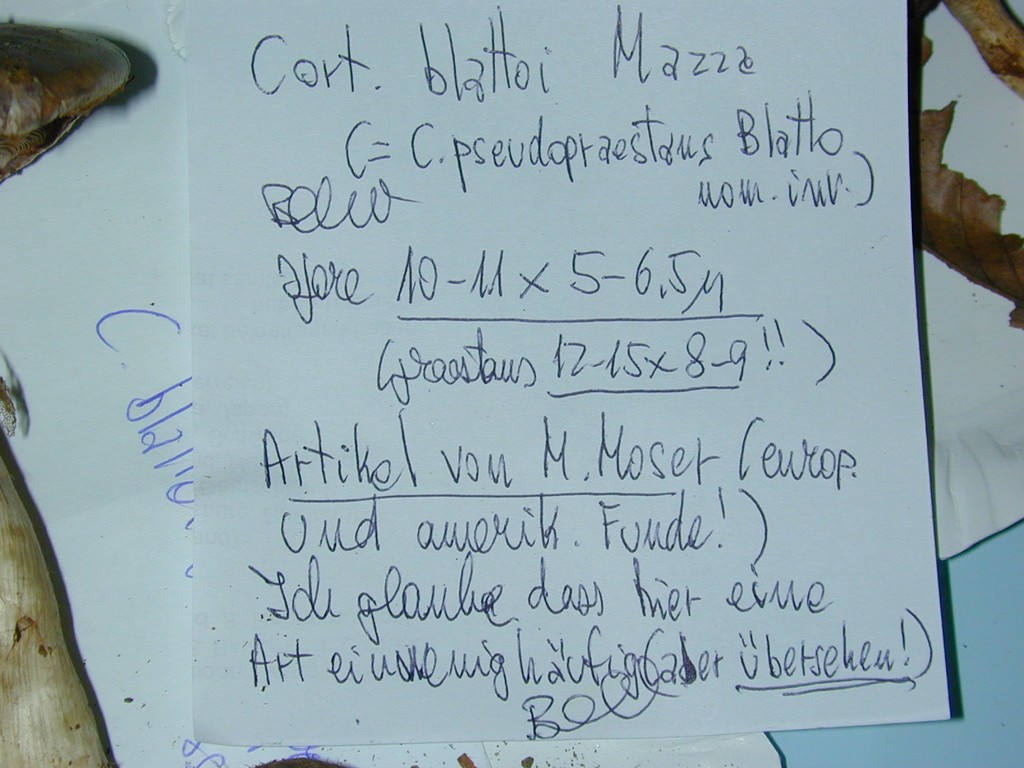 Cort. blattoi Mazza
(= C. pseudopraestans Blatto
nom. inv.)
10-11 x 5-6,5µ
(praestans 12-15x8-9!!)
Artikel von M. Moser (europ.
und amerik. Funde!)
Ich glaube dass hier eine
Art ein wenig häufig (aber übersehen!)
C. blatto